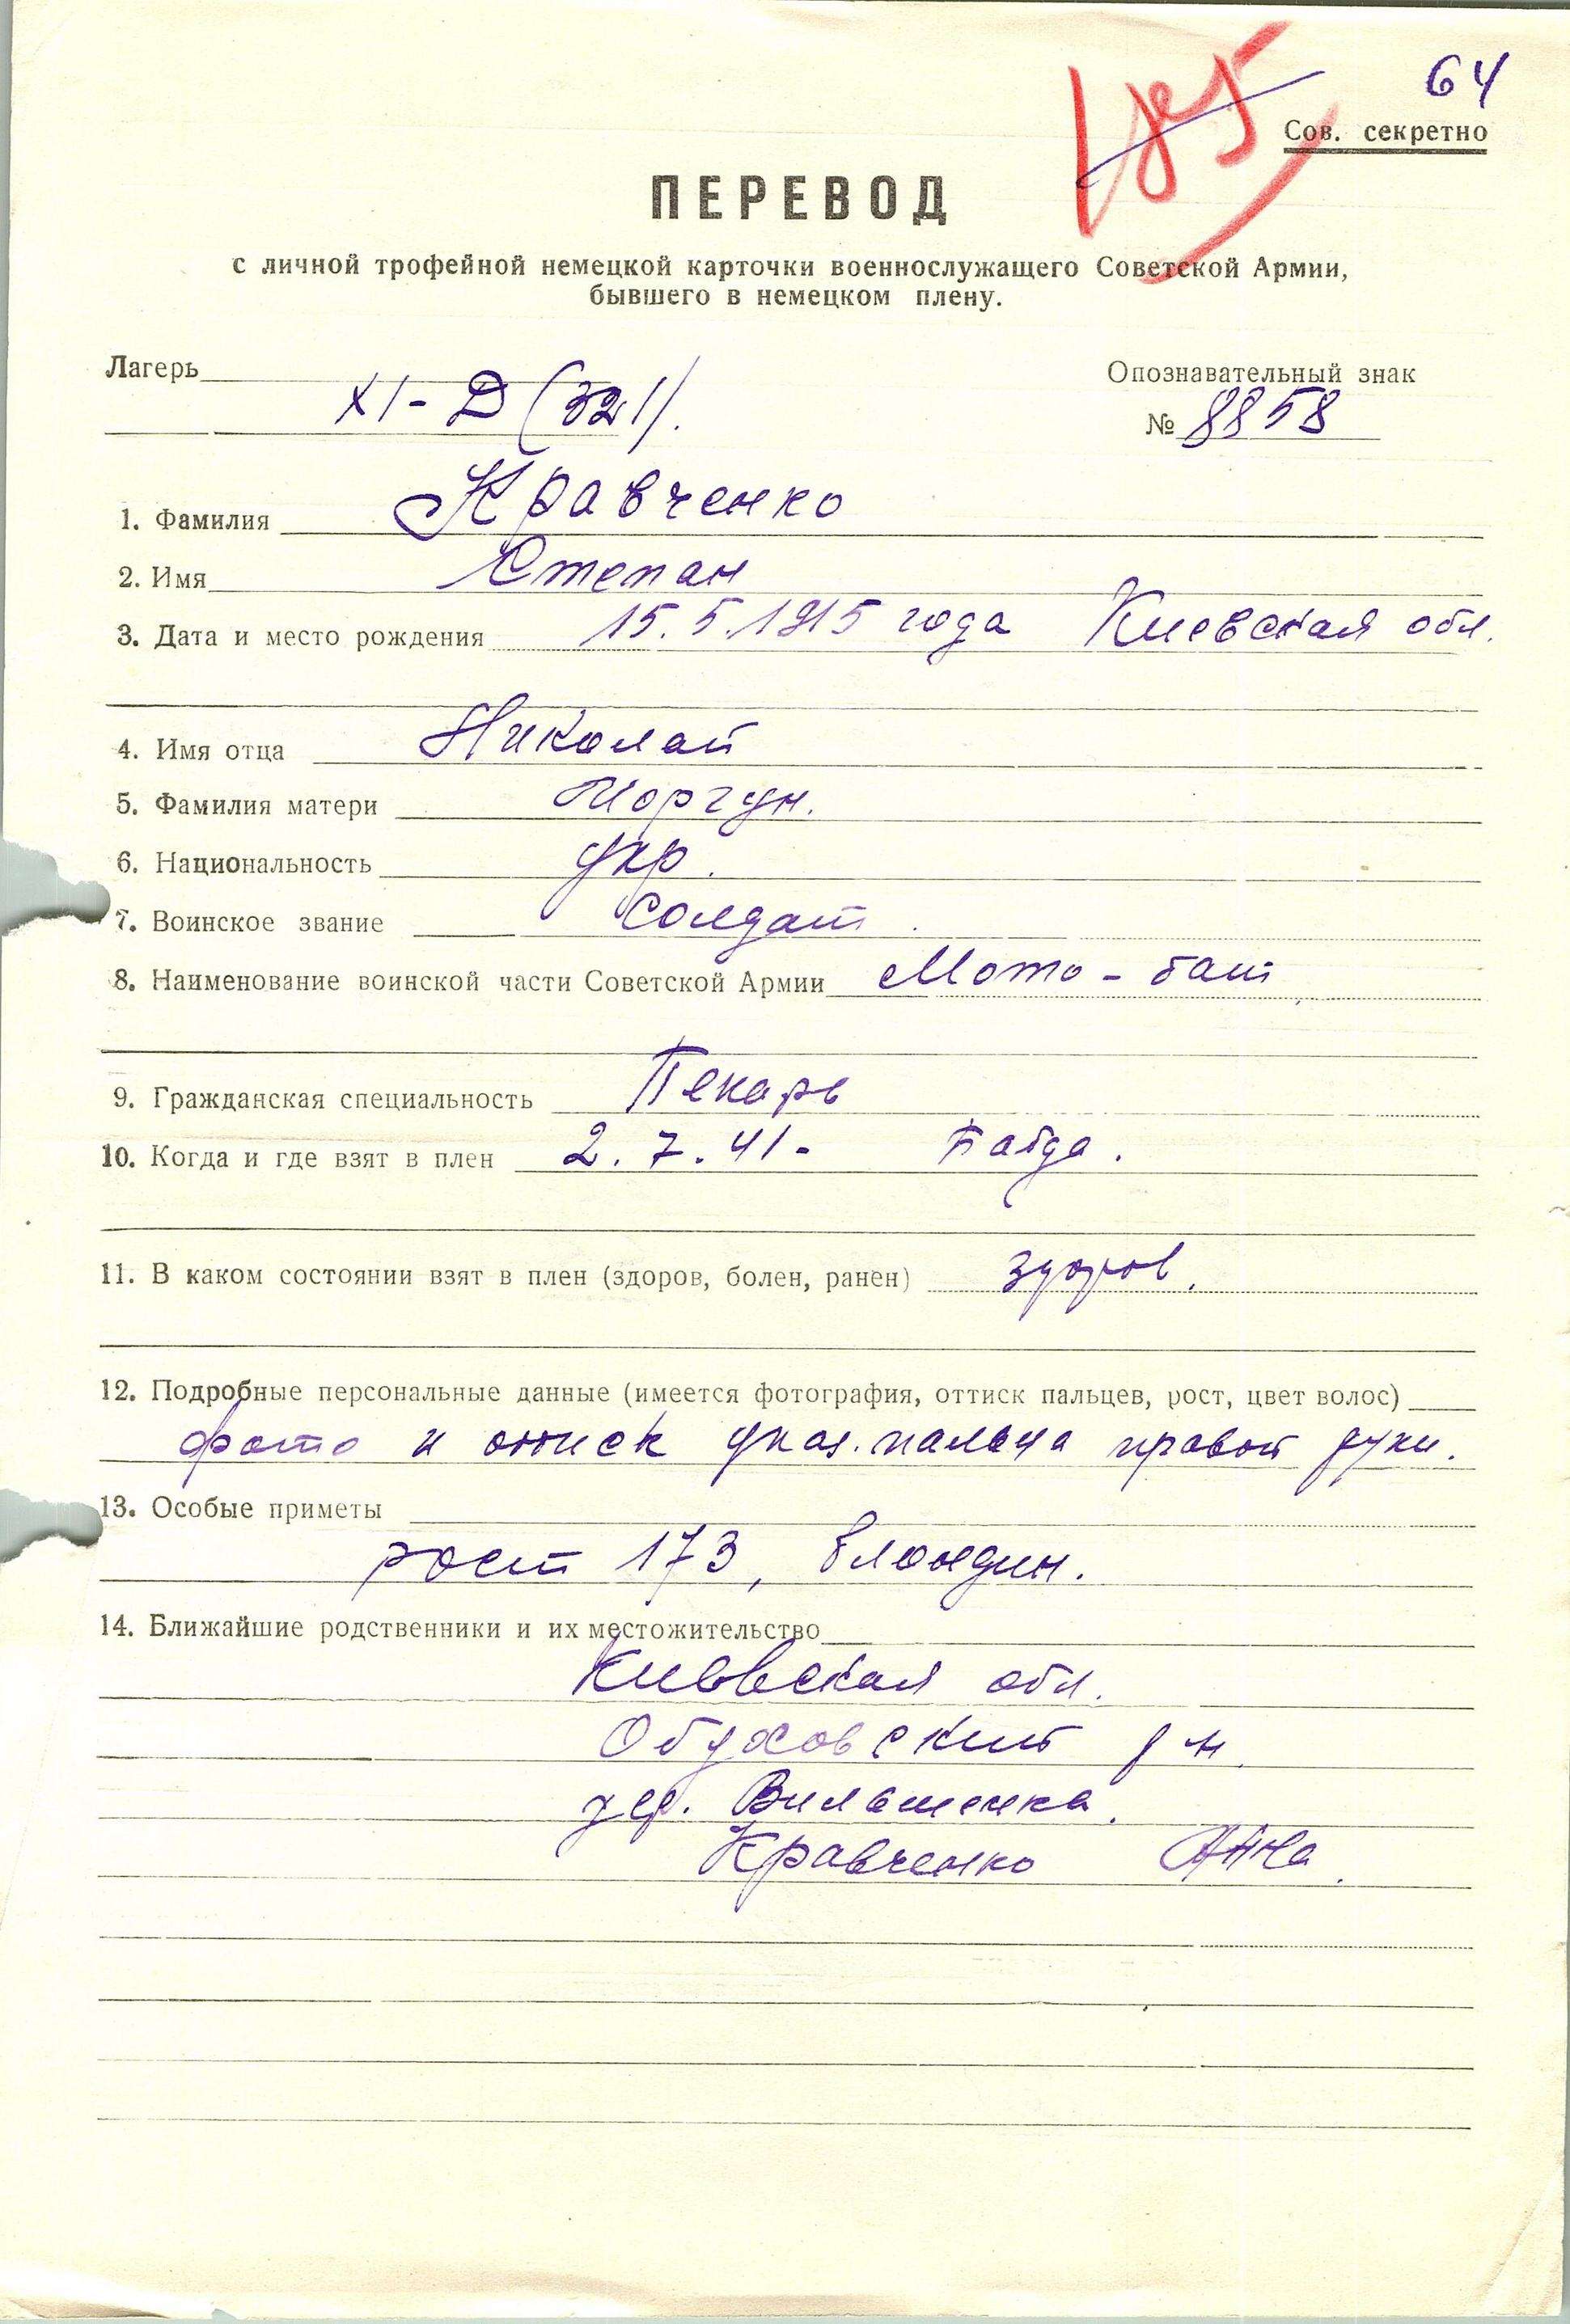 64
Сов. секретно
ПЕРЕВОД
с личной трофейной немецкой карточки военнослужащего Советской Армии,
бывшего в немецком плену.
Лагерь XI-Д (321).
Опознавательный знак
№ 8858
1. Фамилия Кравченко
2. Имя Степан
3. Дата и место рождения 15.5.1915 года Киевская обл.
4. Имя отца Николай
5. Фамилия матери Моргун.
6. Национальность укр.
7. Воинское звание солдат.
8. Наименование воинской части Советской Армии Мото-бат
9. Гражданская специальность Пекарь
10. Когда и где взят в плен 2.7.41-
11. В каком состоянии взят в плен (здоров, болен, ранен) здоров.
12. Подробные персональные данные (имеется фотография, оттиск пальцев, рост, цвет волос)
фото и оттиск указ. пальца правой руки.
13. Особые приметы
рост 173, блондин.
14. Ближайшие родственники и их местожительство
Киевская обл.
Обуховский р-н.
дер.
Кравченко Анна.